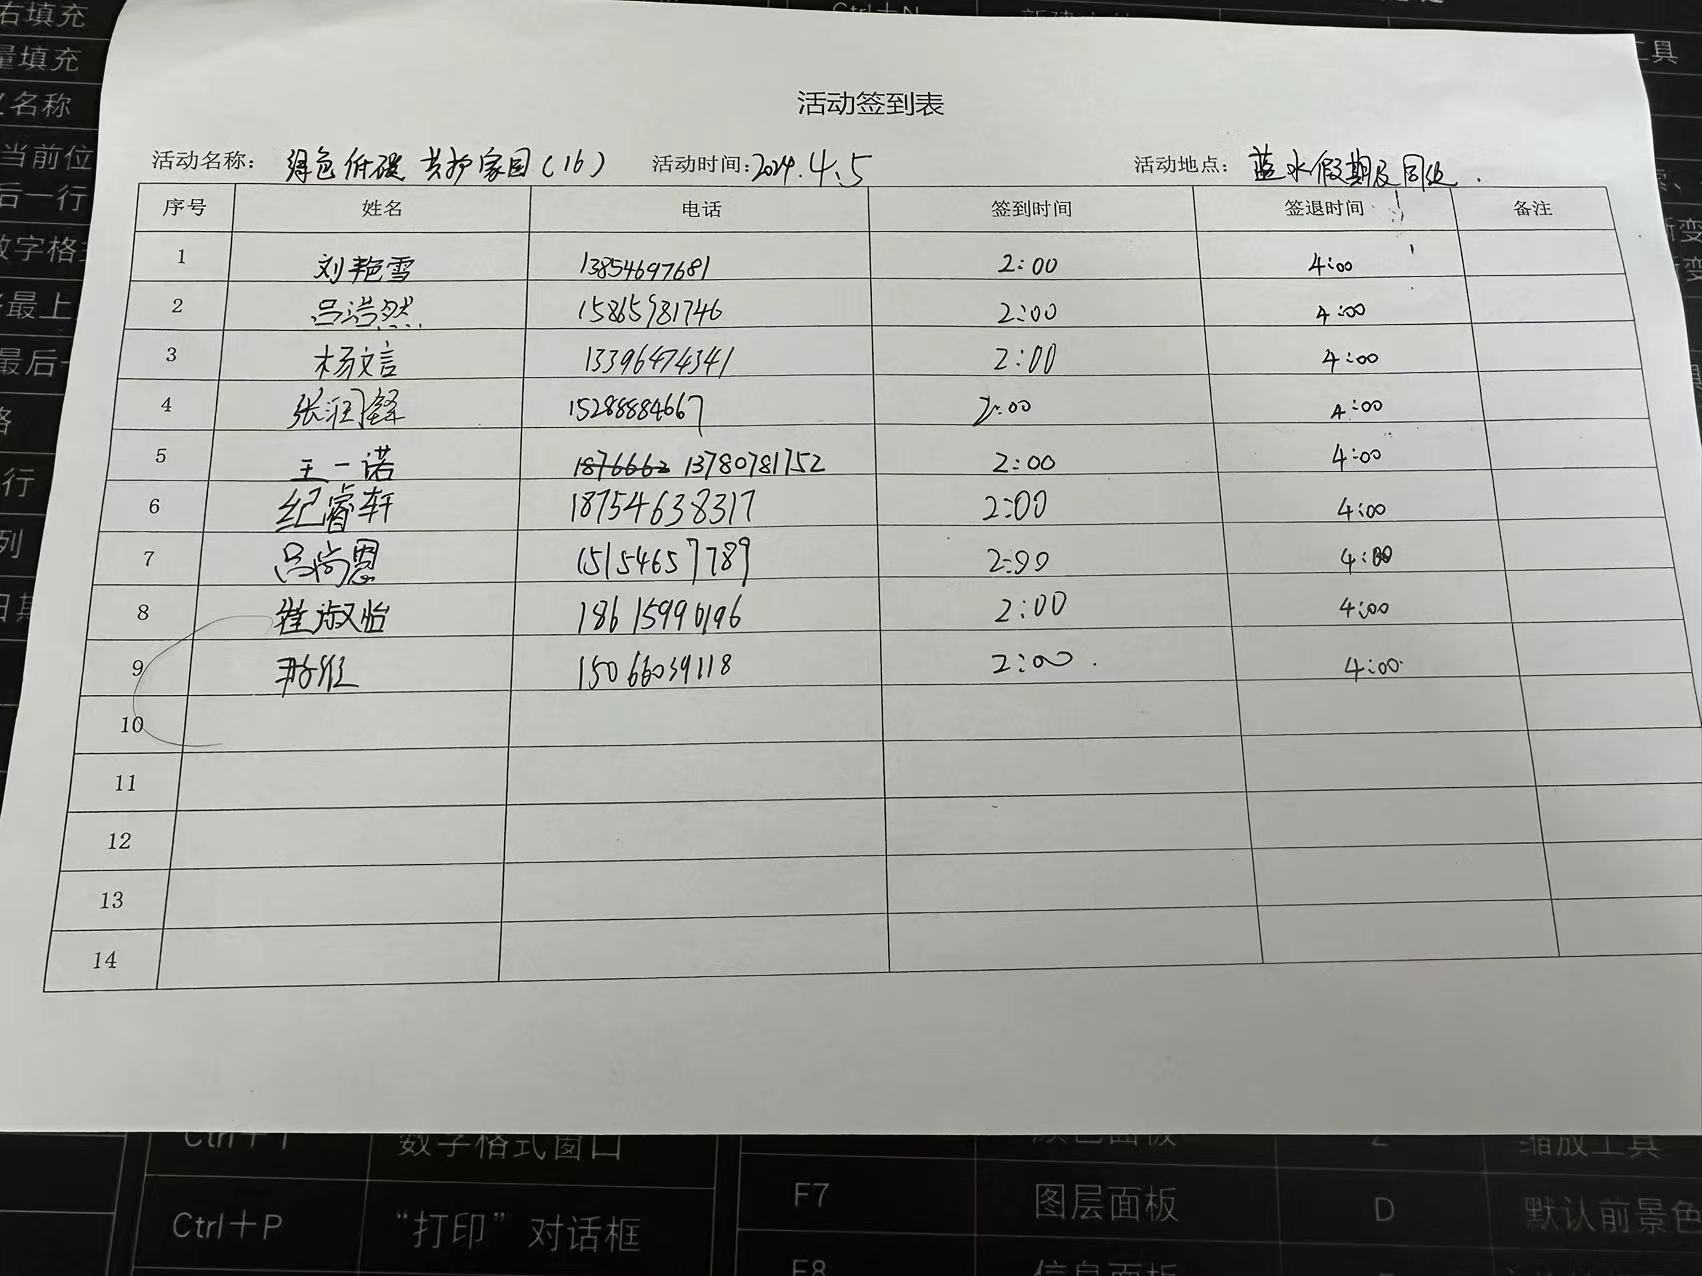 右填充
量填充
义名称
当前位
后一行
数字格式
最后一
行
列
Ctrl+N
工具
活动签到表
活动名称: 绿色低碳 共护家园(16) 活动时间:2024.4.5 活动地点: 蓝水假期及周边.
序号 姓名 电话 签到时间 签退时间 备注
1 刘艳雪 13854697681 2:00 4:00
2 吕浩然 15865981746 2:00 4:00
3 杨文言 13396474341 2:00 4:00
4 张润铎 15288884667 2:00 4:00
5 王一诺 1876662 13780781752 2:00 4:00
6 纪睿轩 18754638317 2:00 4:00
7 吕尚恩 15154657789 2:00 4:00
8 崔淑怡 18615990196 2:00 4:00
9 15066039118 2:00 4:00
10
11
12
13
14
Ctrl+T 数字格式窗口 颜色面板 Z 缩放工具
F7 图层面板 D 默认前景色
Ctrl+P “打印”对话框
F8 信息面板